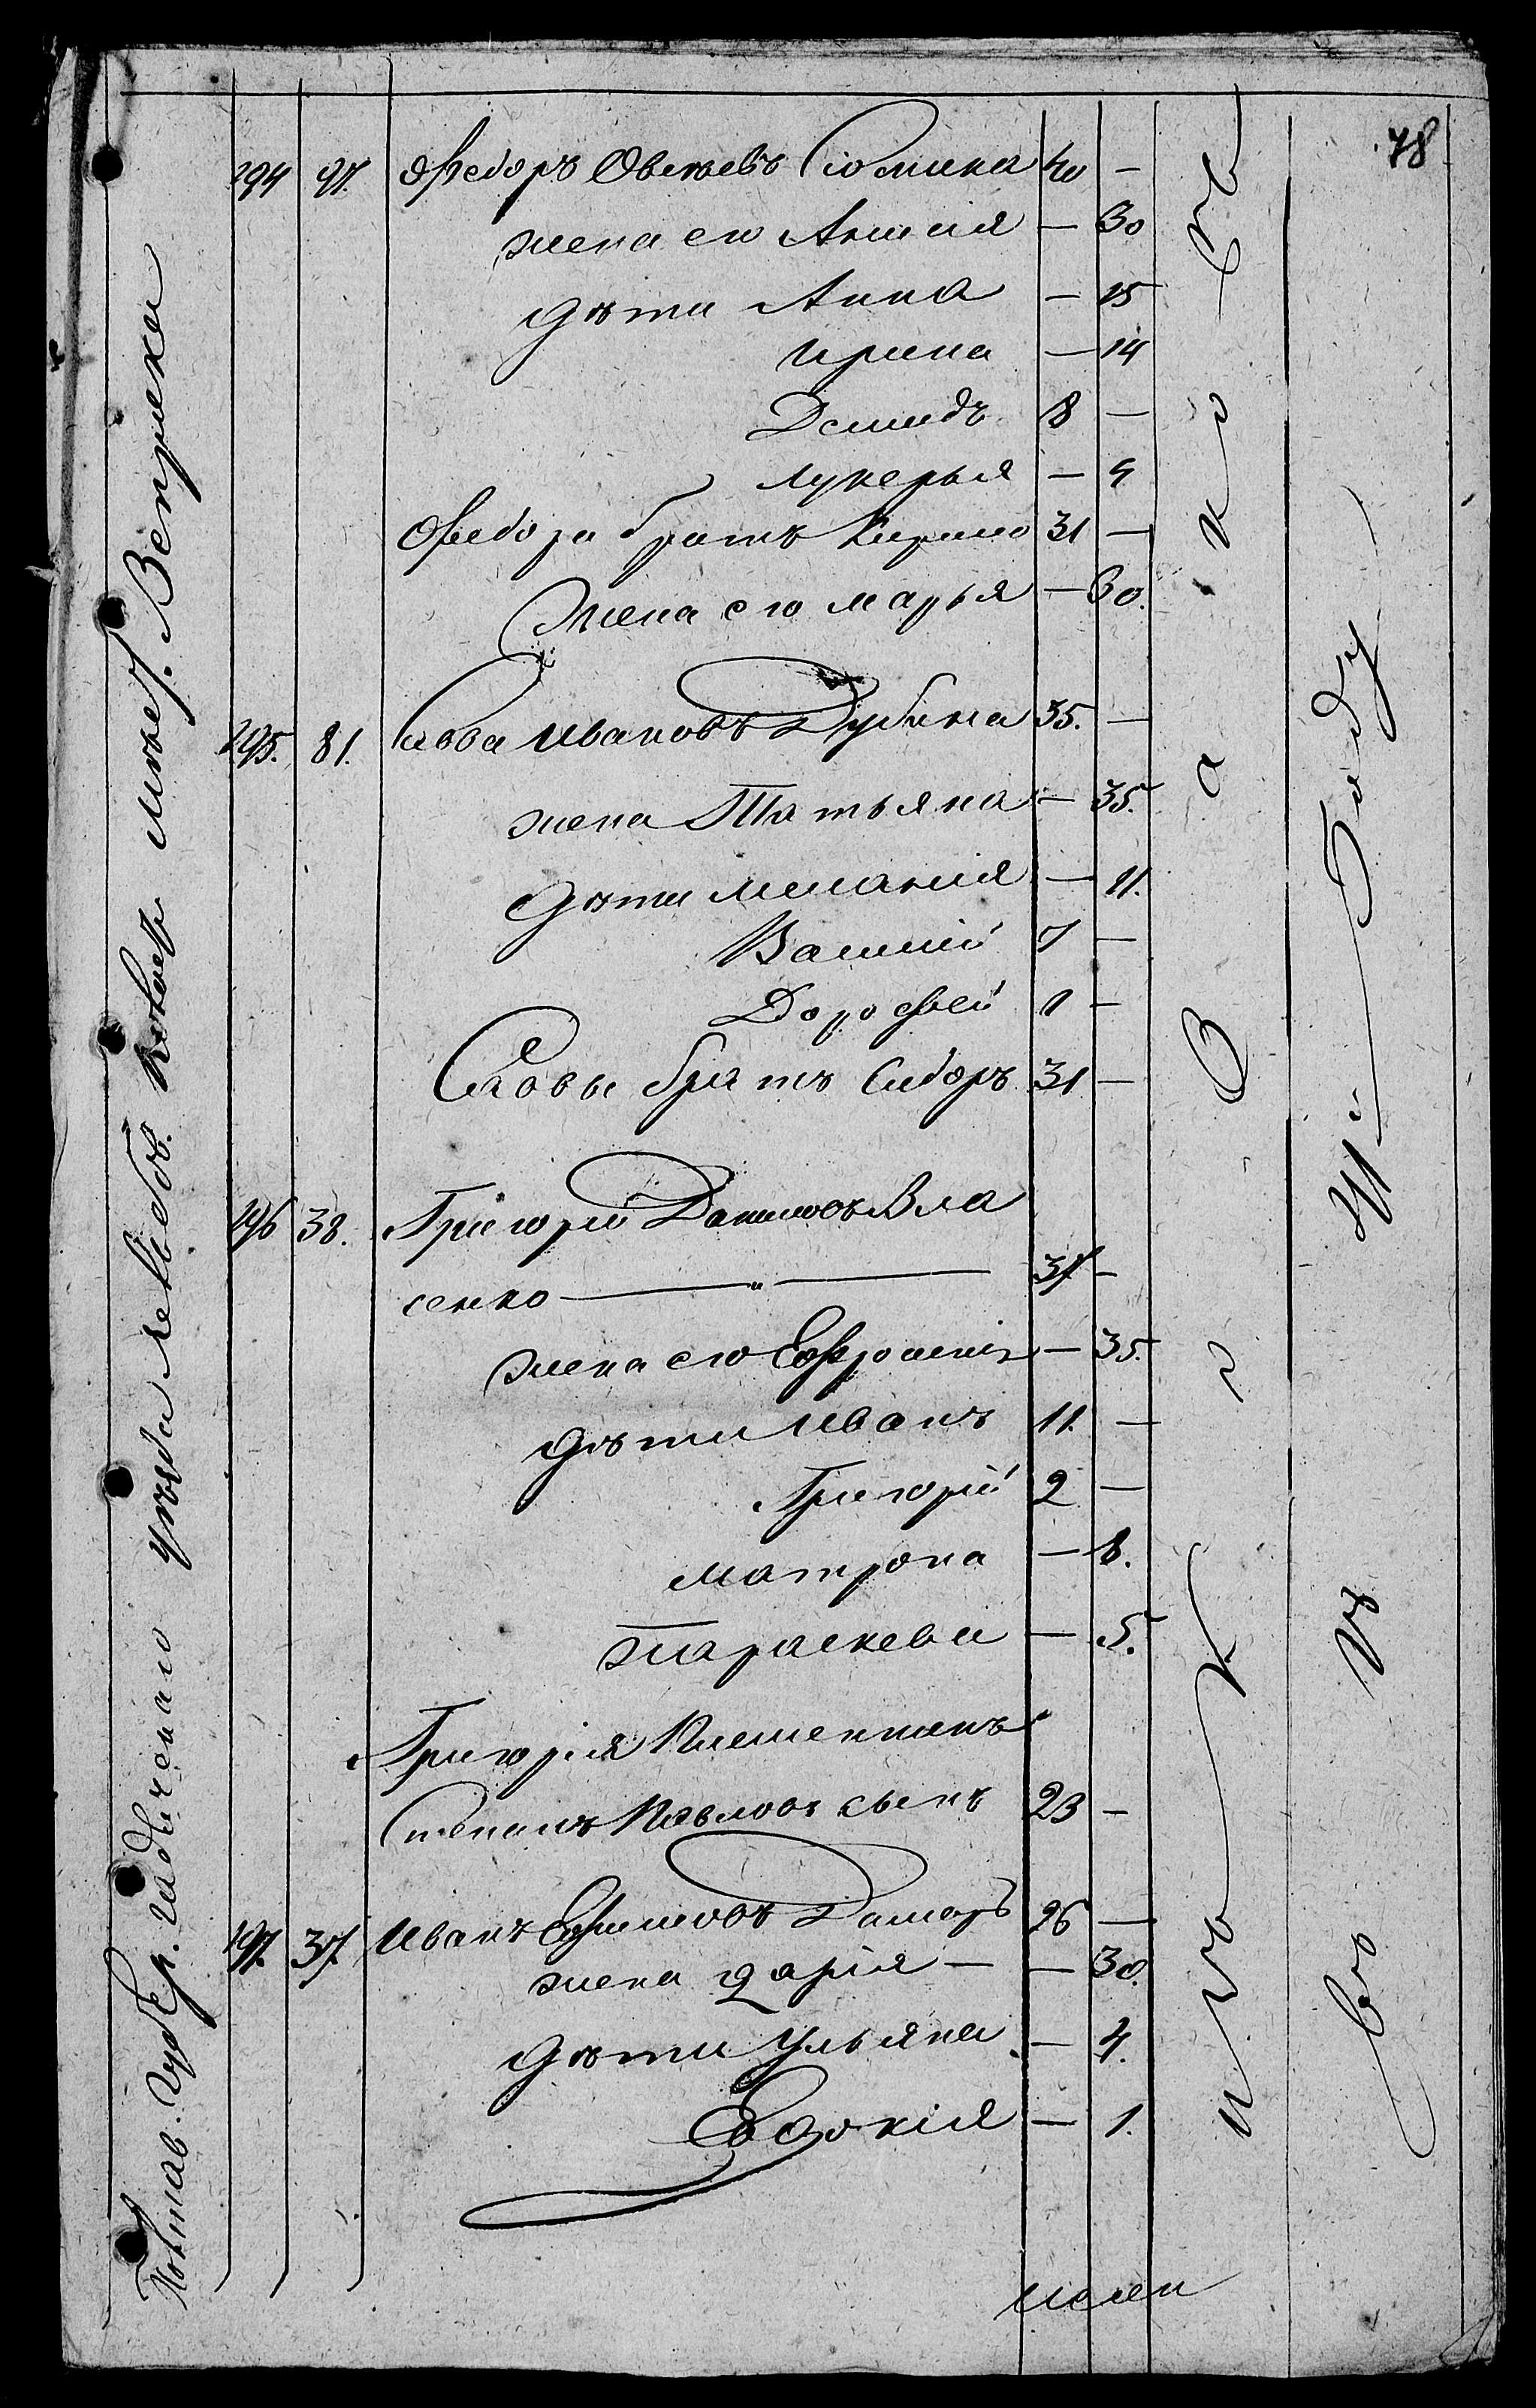 78
294 97. Федоръ Овсѣевъ Сюмика 40 —
жена его Анисія — 30
дѣти Анна — 15
Ирина — 14
Демидъ 8 —
Лукерья — 4
Федора братъ Кирило 31 —
Жена его Марья — 30.
295. 81. Савва Ивановъ Дубина 35. —
жена Татьяна — 35.
дѣти Меланія — 11.
Василій 7 —
Дорофей 1 —
Саввы братъ Сидоръ 31 —
296 38. Григорій Даниловъ Вла
сенко — " — 37 —
жена его Ефросинія — 35.
дѣти Иванъ 11. —
Григорій 2 —
Матрона — 8.
Параскева — 5.
Григорія Племенникъ
Степанъ Павловъ сынъ 23 —
297. 37. Иванъ Ефимовъ 26 —
жена Дарія — — 30.
дѣти Ульяна — 4.
Евдокія — 1.
уѣзда
мѣст. Веприка